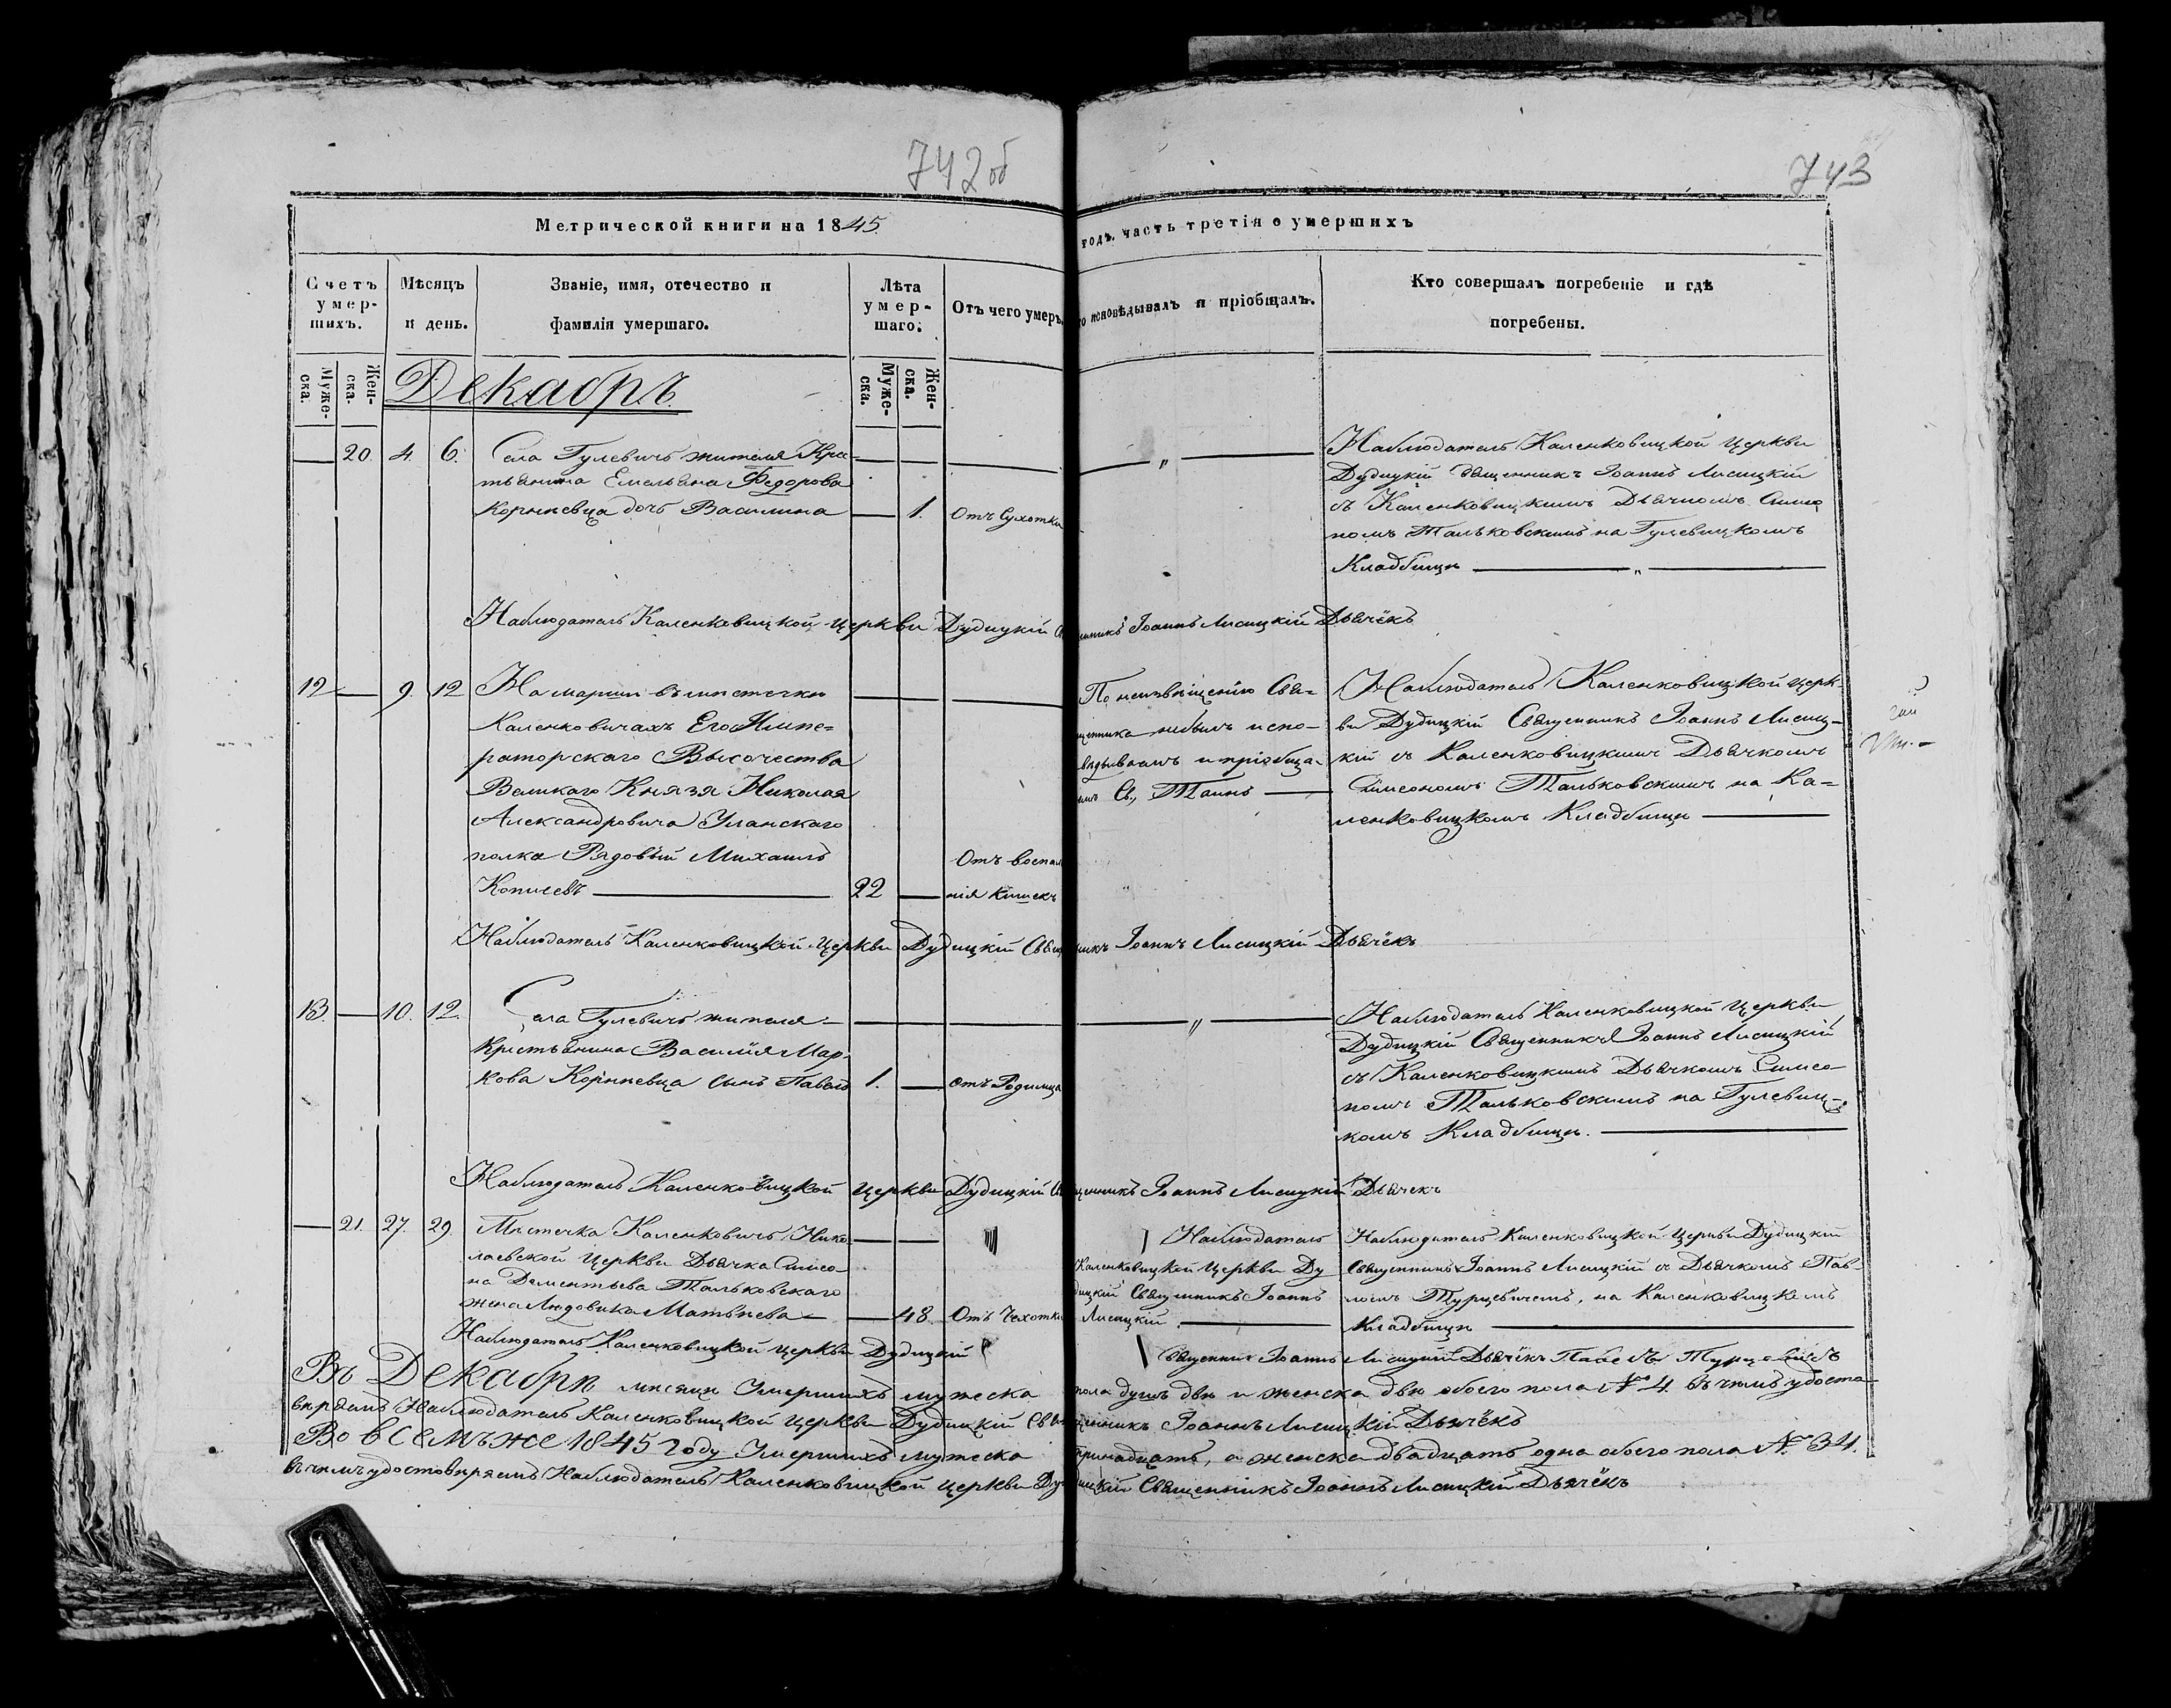 742об
743
Метрической книги на 1845
годъ. часть третія о умершихъ
Счетъ умер-шихъ.
Мѣсяцъ и день.
Званіе, имя, отечество и фамилія умершаго.
Лѣта умер-шаго.
Отъ чего умеръ.
исповѣдывалъ и пріобщалъ.
Кто совершалъ погребеніе и гдѣ погребены.
Муже-ска.
Жен-ска.
Декабрь
Муже-ска.
Жен-ска.
20. 4. 6.
Села Гулевичъ жителя Кре-
тьянина Емельяна Федорова
дочь Василина
1.
Отъ Сухотки
Наблюдатель Каленковицкой Церкви
Дудицкій Священникъ Іоаннъ Лисицкій
съ Каленковицкимъ Дьячкомъ Симео
номъ Тальковскимъ на Гулевицкомъ
Кладбищѣ
Наблюдатель Каленковицкой Церкви Дудицкій Іоаннъ Лисицкій Дьячёкъ
12 9. 12
На марши въ мѣстечкѣ
Каленковичахъ Его Импе=
раторскаго Высочества
Великаго Князя Николая
Александровича Уланскаго
полка Рядовый Михаилъ
22
Отъ воспал
нія кишекъ
По неизвѣщенію Свя=
щенника небылъ испо-
вѣдыванъ и пріобща-
Св. Таинъ
Наблюдатель Каленковицкой Церк-
ви Дудицкій Священникъ Іоаннъ Лисиц-
кій съ Каленковицкимъ Дьячкомъ
Симеономъ Тальковскимъ на Ка=
ленковицкомъ Кладбищѣ
Наблюдатель Каленковицкой Церкви Дудицкій Іоаннъ Лисицкій Дьячёкъ
13. 10. 12.
Села Гулевичъ жителя
Крестьянина Василія Мар-
кова сынъ Павелъ
1.
отъ Родимца
Наблюдатель Каленковицкой Церкви
Дудицкій Священникъ Іоаннъ Лисицкій
съ Каленковицкимъ Дьячкомъ Симео
номъ Тальковскимъ на Гулевиц-
комъ Кладбищѣ.
Наблюдатель Каленковицкой Церкви Дудицкій Іоаннъ Лисицкій Дьячекъ
21. 27. 29.
Мѣстечка Каленковичъ Нико-
лаевской Церкви Дьячка Симео
на Дементьева Тальковскаго
жена Людовика Матвѣева
48.
Отъ Чахотки
Наблюдатель
Каленковицкой Церкви Ду
дицкій Священникъ Іоаннъ
Лисицкій
Наблюдатель Каленковицкой Церкви Дудицкій
Священникъ Іоаннъ Лисицкій съ Дьячкомъ Пав-
ломъ Турцевичемъ, на Каленковицкомъ
Кладбищѣ
Наблюдатель Каленковицкой Церкви Дудицкій Священник Іоаннъ Лисицкій Дьячёк Павелъ Турцевичъ
Въ Декабрѣ мѣсяцѣ Умершихъ мужеска пола душъ двѣ и женска двѣ обоего пола № 4. въ чемъ удосто-
вѣряемъ Наблюдатель Каленковицкой Церкви Дудицкій Священникъ Іоаннъ Лисицкій Дьячёкъ
Во всемъ же 1845 году Умершихъ мужеска тринадцать, а женска двадцать одна обоего пола № 34.
въ чемъ удостовѣряемъ Наблюдатель Каленковицкой Церкви Дудицкій Священникъ Іоаннъ Лисицкій Дьячёкъ